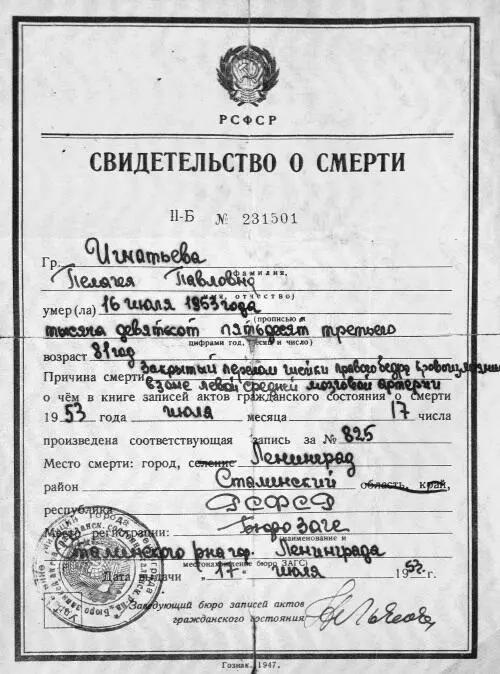 РСФСР
СВИДЕТЕЛЬСТВО О СМЕРТИ
II-Б № 231501
Гр. Игнатьева
фамилия,
Пелагея Павловна
отчество)
умер(ла) 16 июля 1953 года
(прописью и
тысяча девятсот пятьдесят третьего
цифрами год, месяц и число)
возраст 81 год
Причина смерти закрытый перелом шейки правого бедра, кровоизлияние
в зоне левой средней мозговой артерии
о чём в книге записей актов гражданского состояния о смерти
1953 года июля месяца 17 числа
произведена соответствующая запись за № 825
Место смерти: город, селение Ленинград
район Сталинский область, край,
республика РСФСР
Место регистрации: Бюро Загс
(наименование и
Сталинского р-на гор. Ленинграда
местонахождение бюро ЗАГС)
Дата выдачи „17" июля 1953 г.
Заведующий бюро записей актов
гражданского состояния
Гознак. 1947.